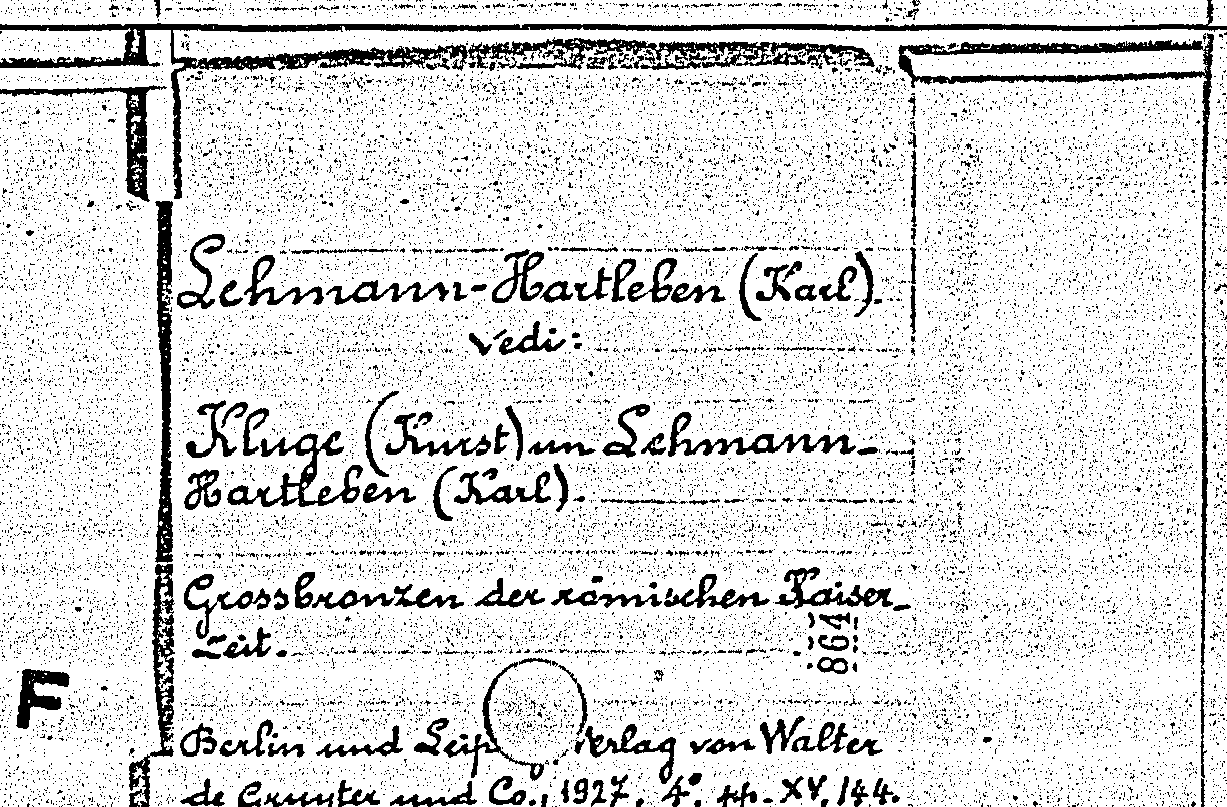 Lehmann-Hartleben (Karl).
Vedi:
Kluge (Kurst) un Lehmann-
Hartleben (Karl).
Grossbronzen der römischen Kaiser-
Zeit.
864
F
Berlin und Leip Verlag von Walter
de Gruyter und Co., 1927. 4°. pp. XV, 144.